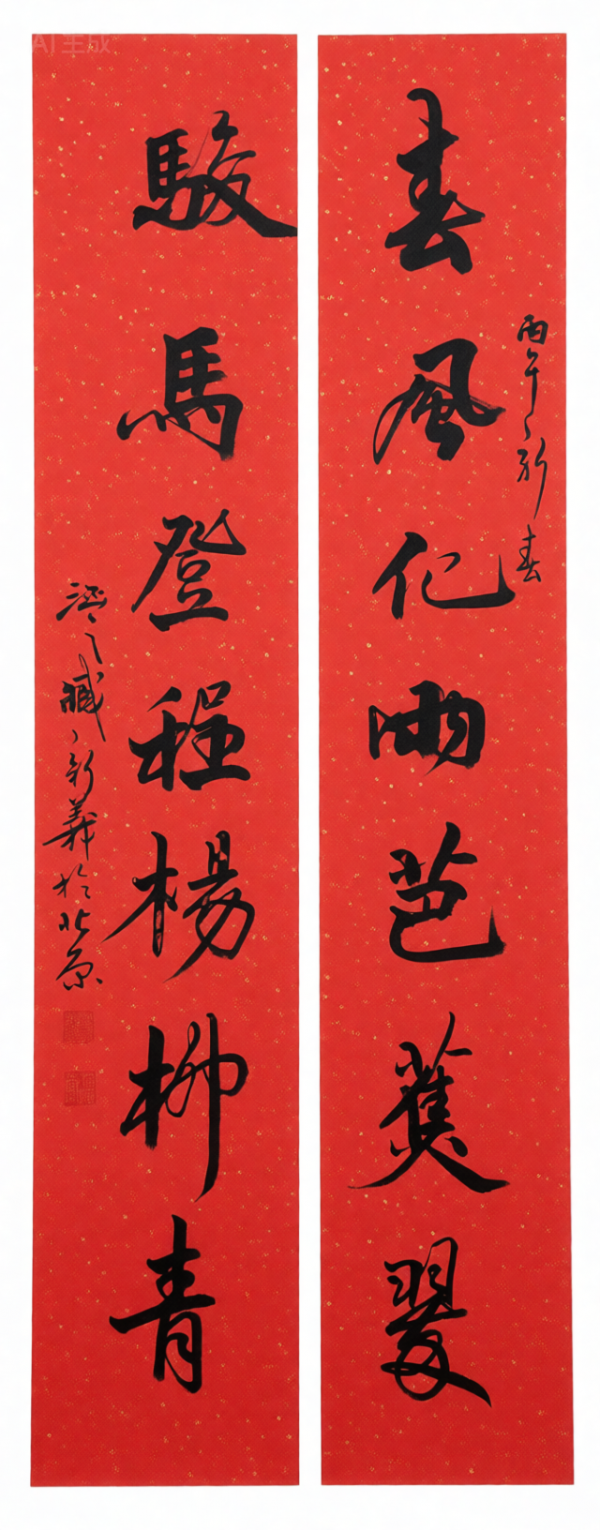 AI 生成
春風化雨芭蕉翠
丙午新春
駿馬登程楊柳青
新義於北京